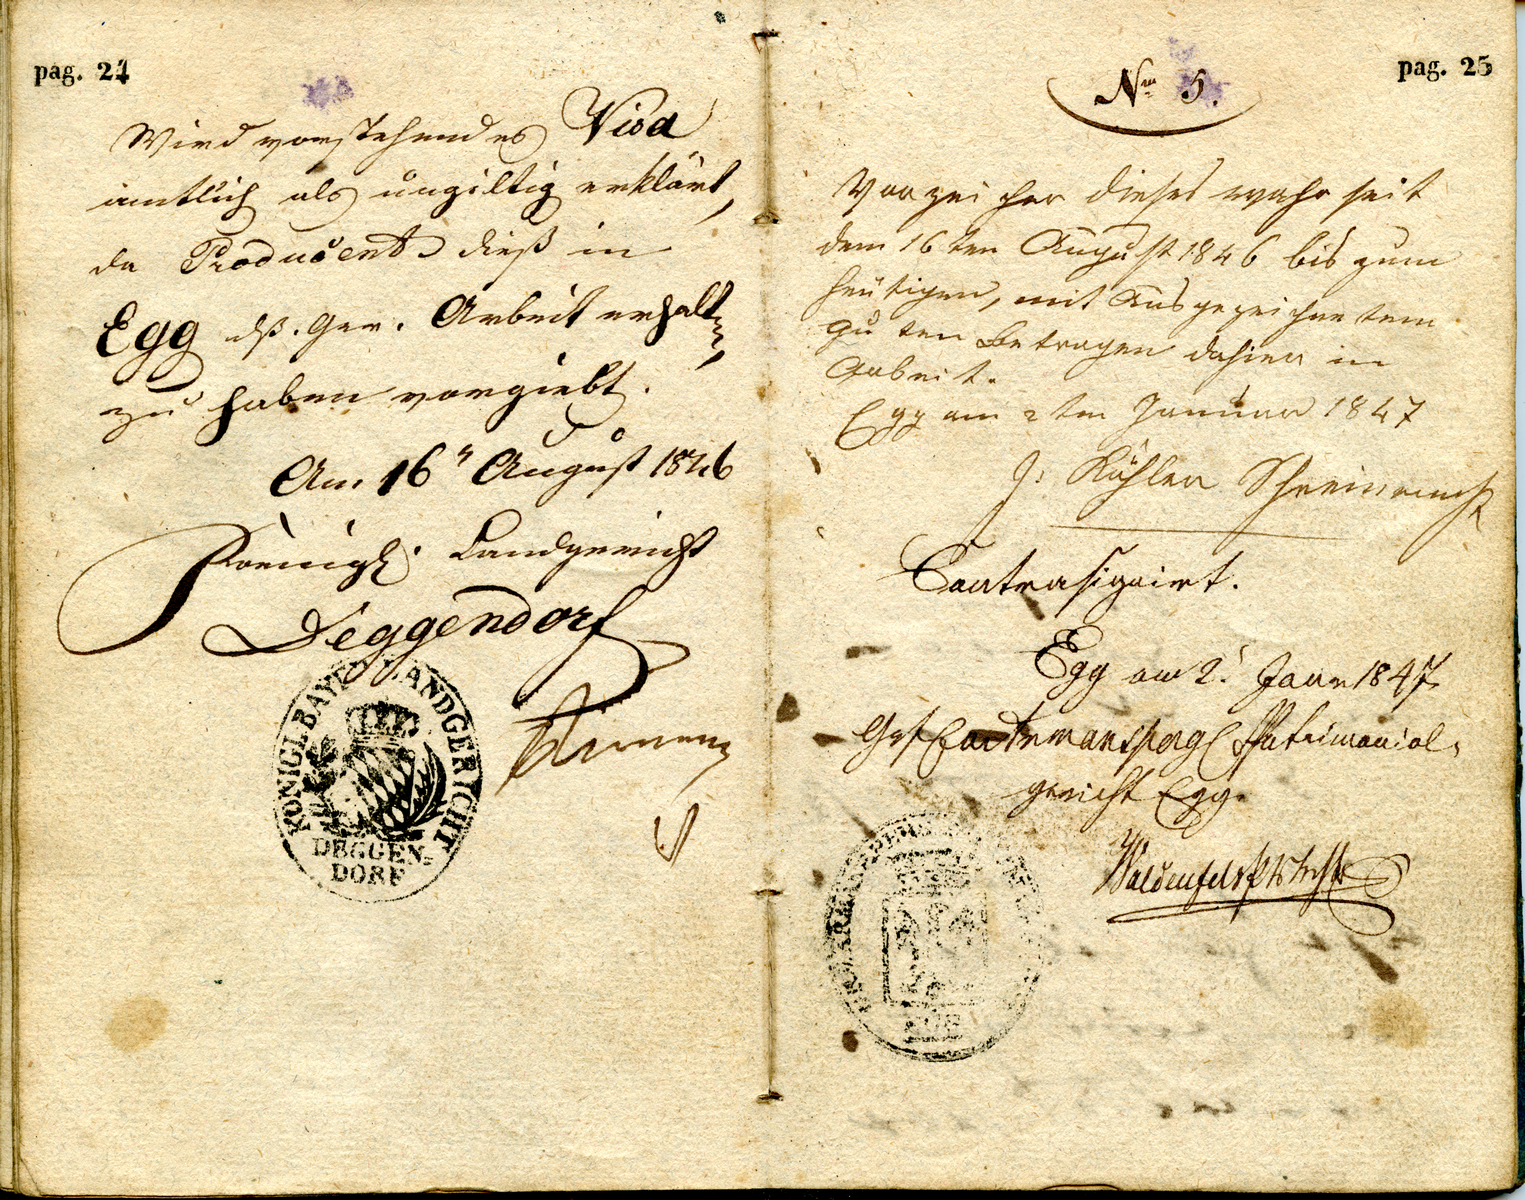 pag. 24
Wird vorstehendes Visa
amtlich als ungiltig erklärt,
da Producent dieß in
Egg dß. Ger. Arbeit erhalt
zu haben vorgiebt.
Am 16 August 1846
Königl. Landgericht
Deggendorf
KÖNIGL. BAYER. LANDGERICHT
DEGGEN-
DORF
pag. 25
Nro 5.
Vorzeicher dieses wahr seit
dem 16ten August 1846 bis zum
heutigen, mit Ausgezeichnetem
guten Betragen dahier in
Arbeit.
Egg am 2ten Januar 1847
J. Köhler
Contrasignirt.
Egg am 2. Janr 1847
Patrimonial-
gericht Egg.
Waldenfels
EGG